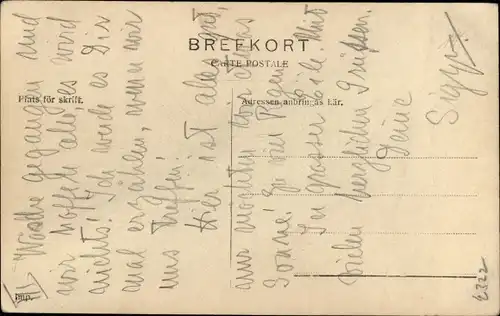 BREFKORT
CARTE POSTALE
Plats för skrift.
Adressen anbringas här.
Imp.
II/ Wäsche gegangen und
wir hoffen also, es wird
nichts! Ich werde es Dir
mal erzählen, wenn wir
uns treffen!
Hier ist alles gut,
nur möchten wir etwas
Sonne! Zu viel Regen.
In grosser Eile. Mit
vielen herzlichen Grüssen.
Deine
Siggy.
6322